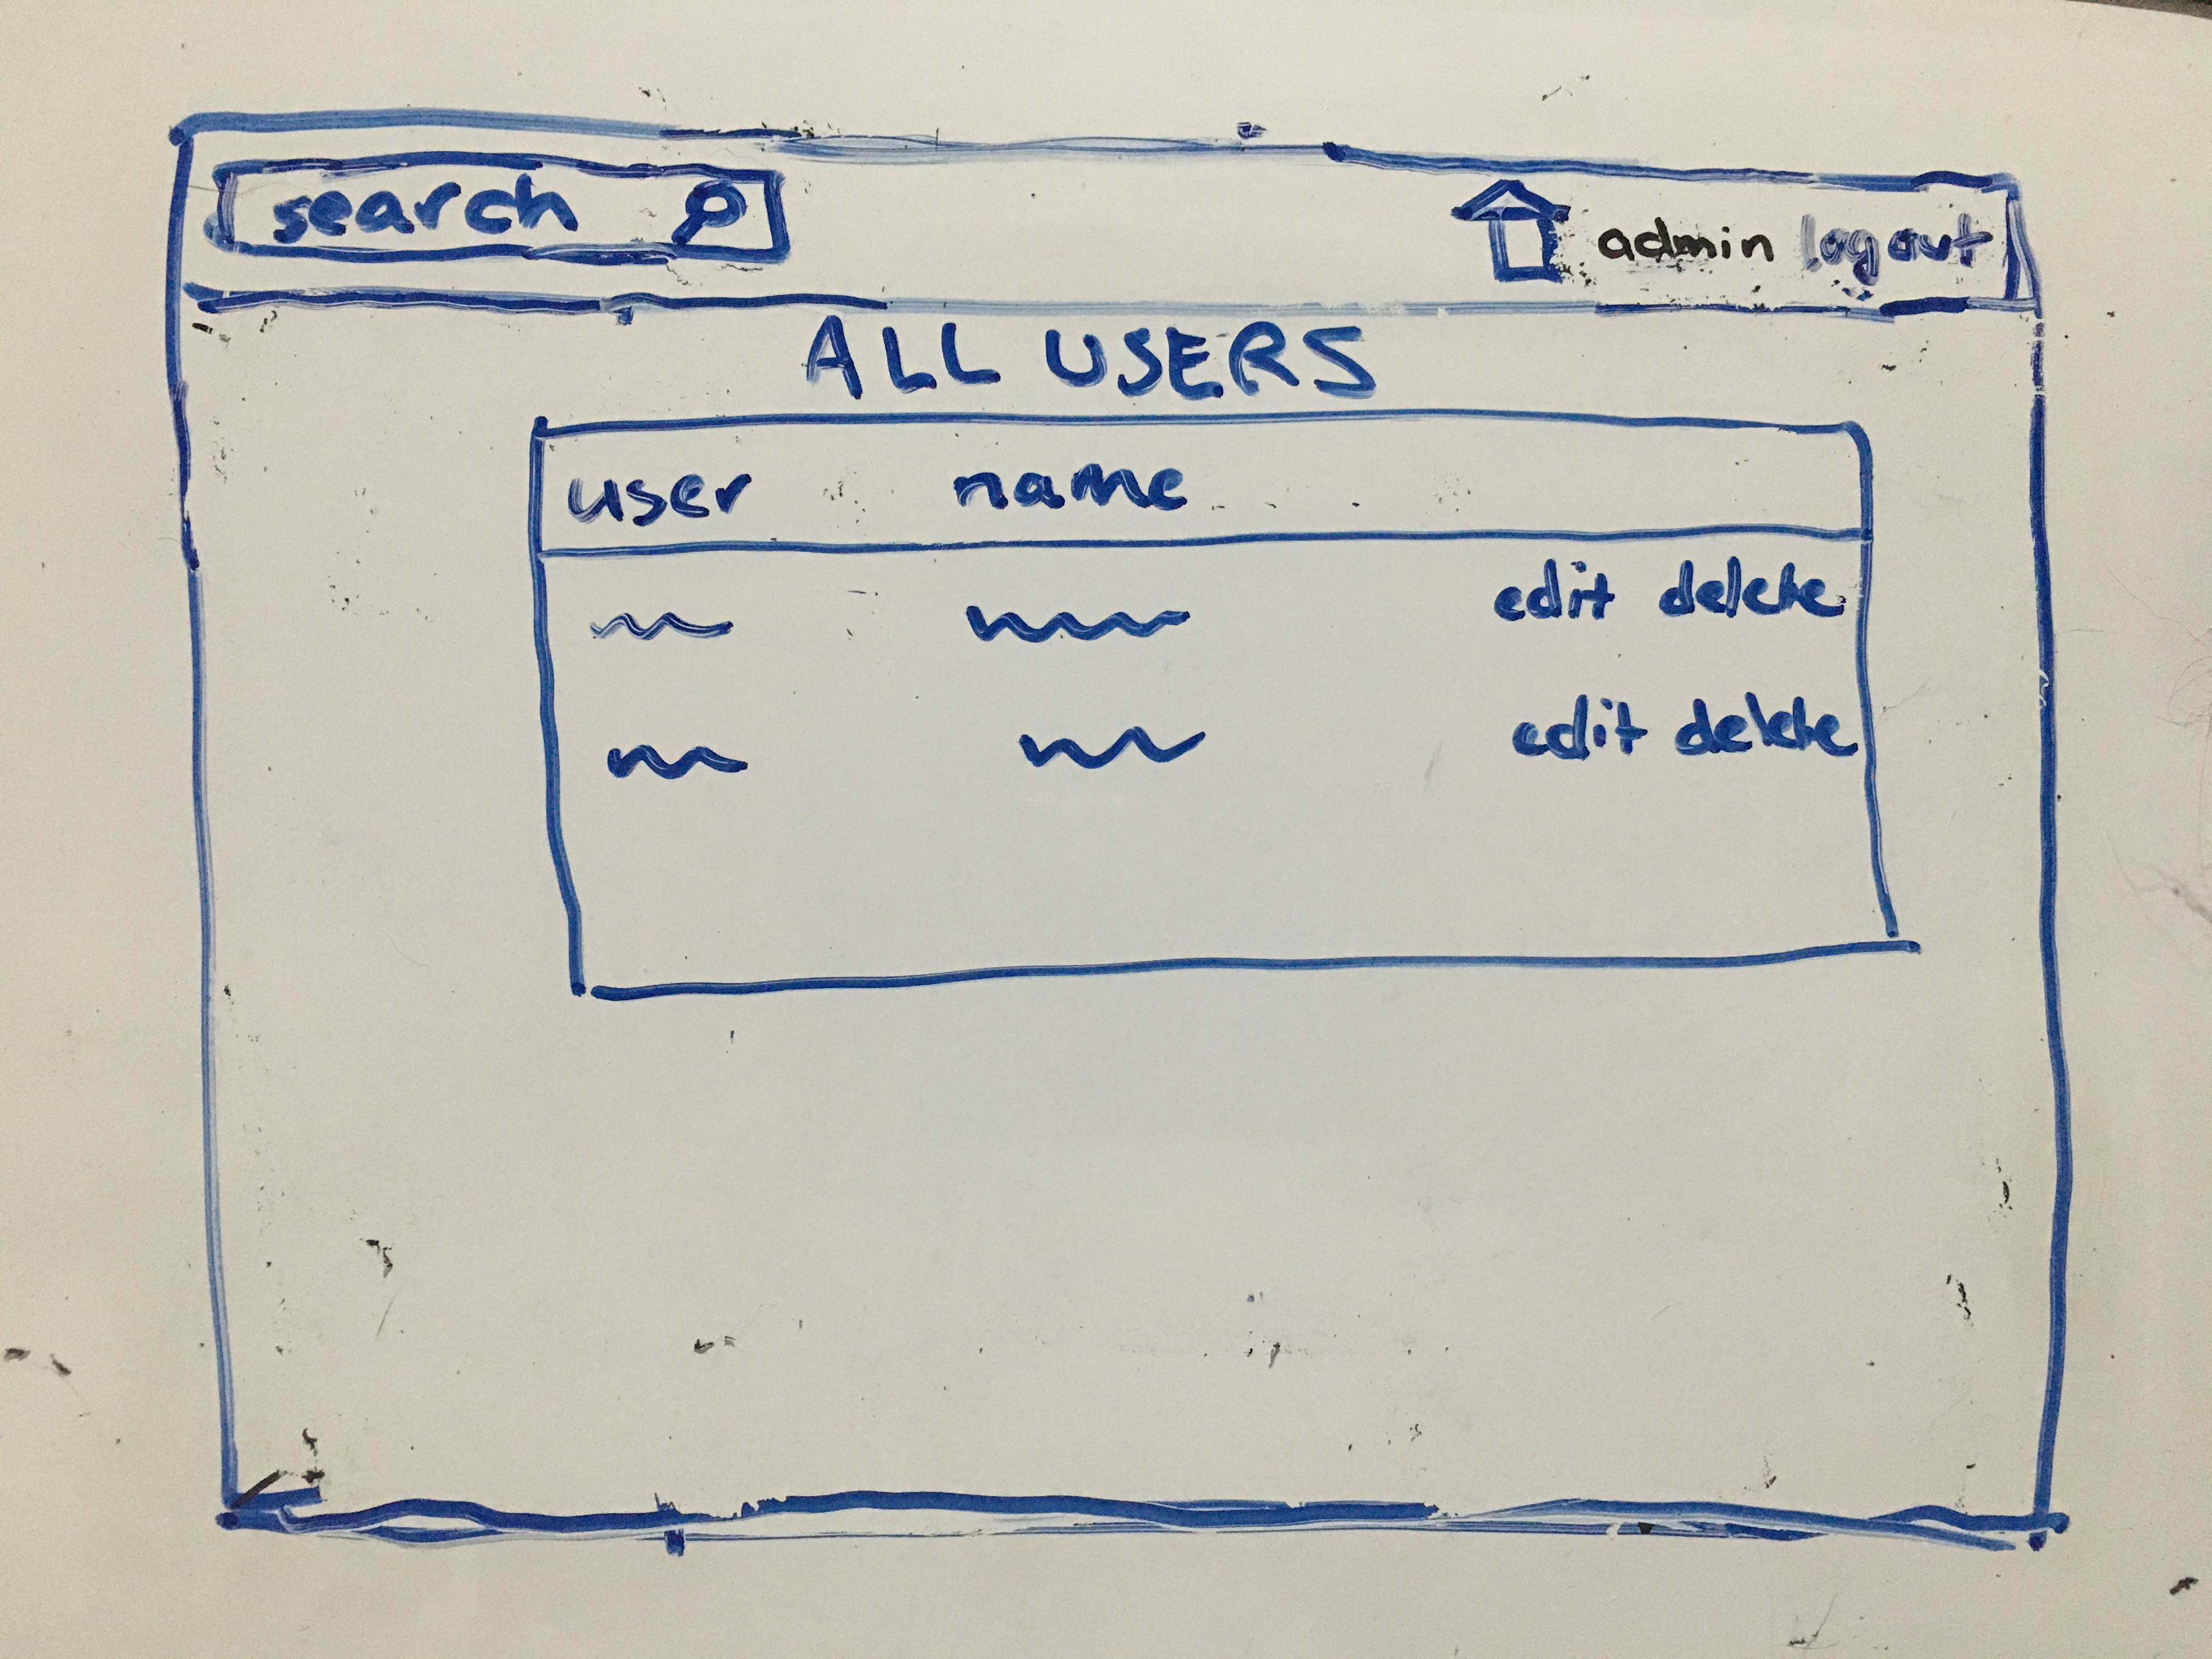 search admin logout
ALL USERS
user name
edit delete
edit delete